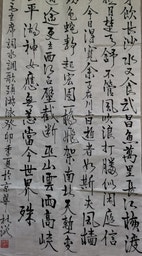 飲長沙水又食武昌魚萬里長江橫渡
目楚天舒不管風吹浪打勝似閑庭信
今日得寬餘子在川上曰逝者如斯夫風檣
龜蛇靜起宏圖一橋飛架南北天塹變
途更立西江石壁截斷巫山雲雨高峽
平湖神女應無恙當今世界殊
主席詞水調歌頭游泳癸卯季夏於